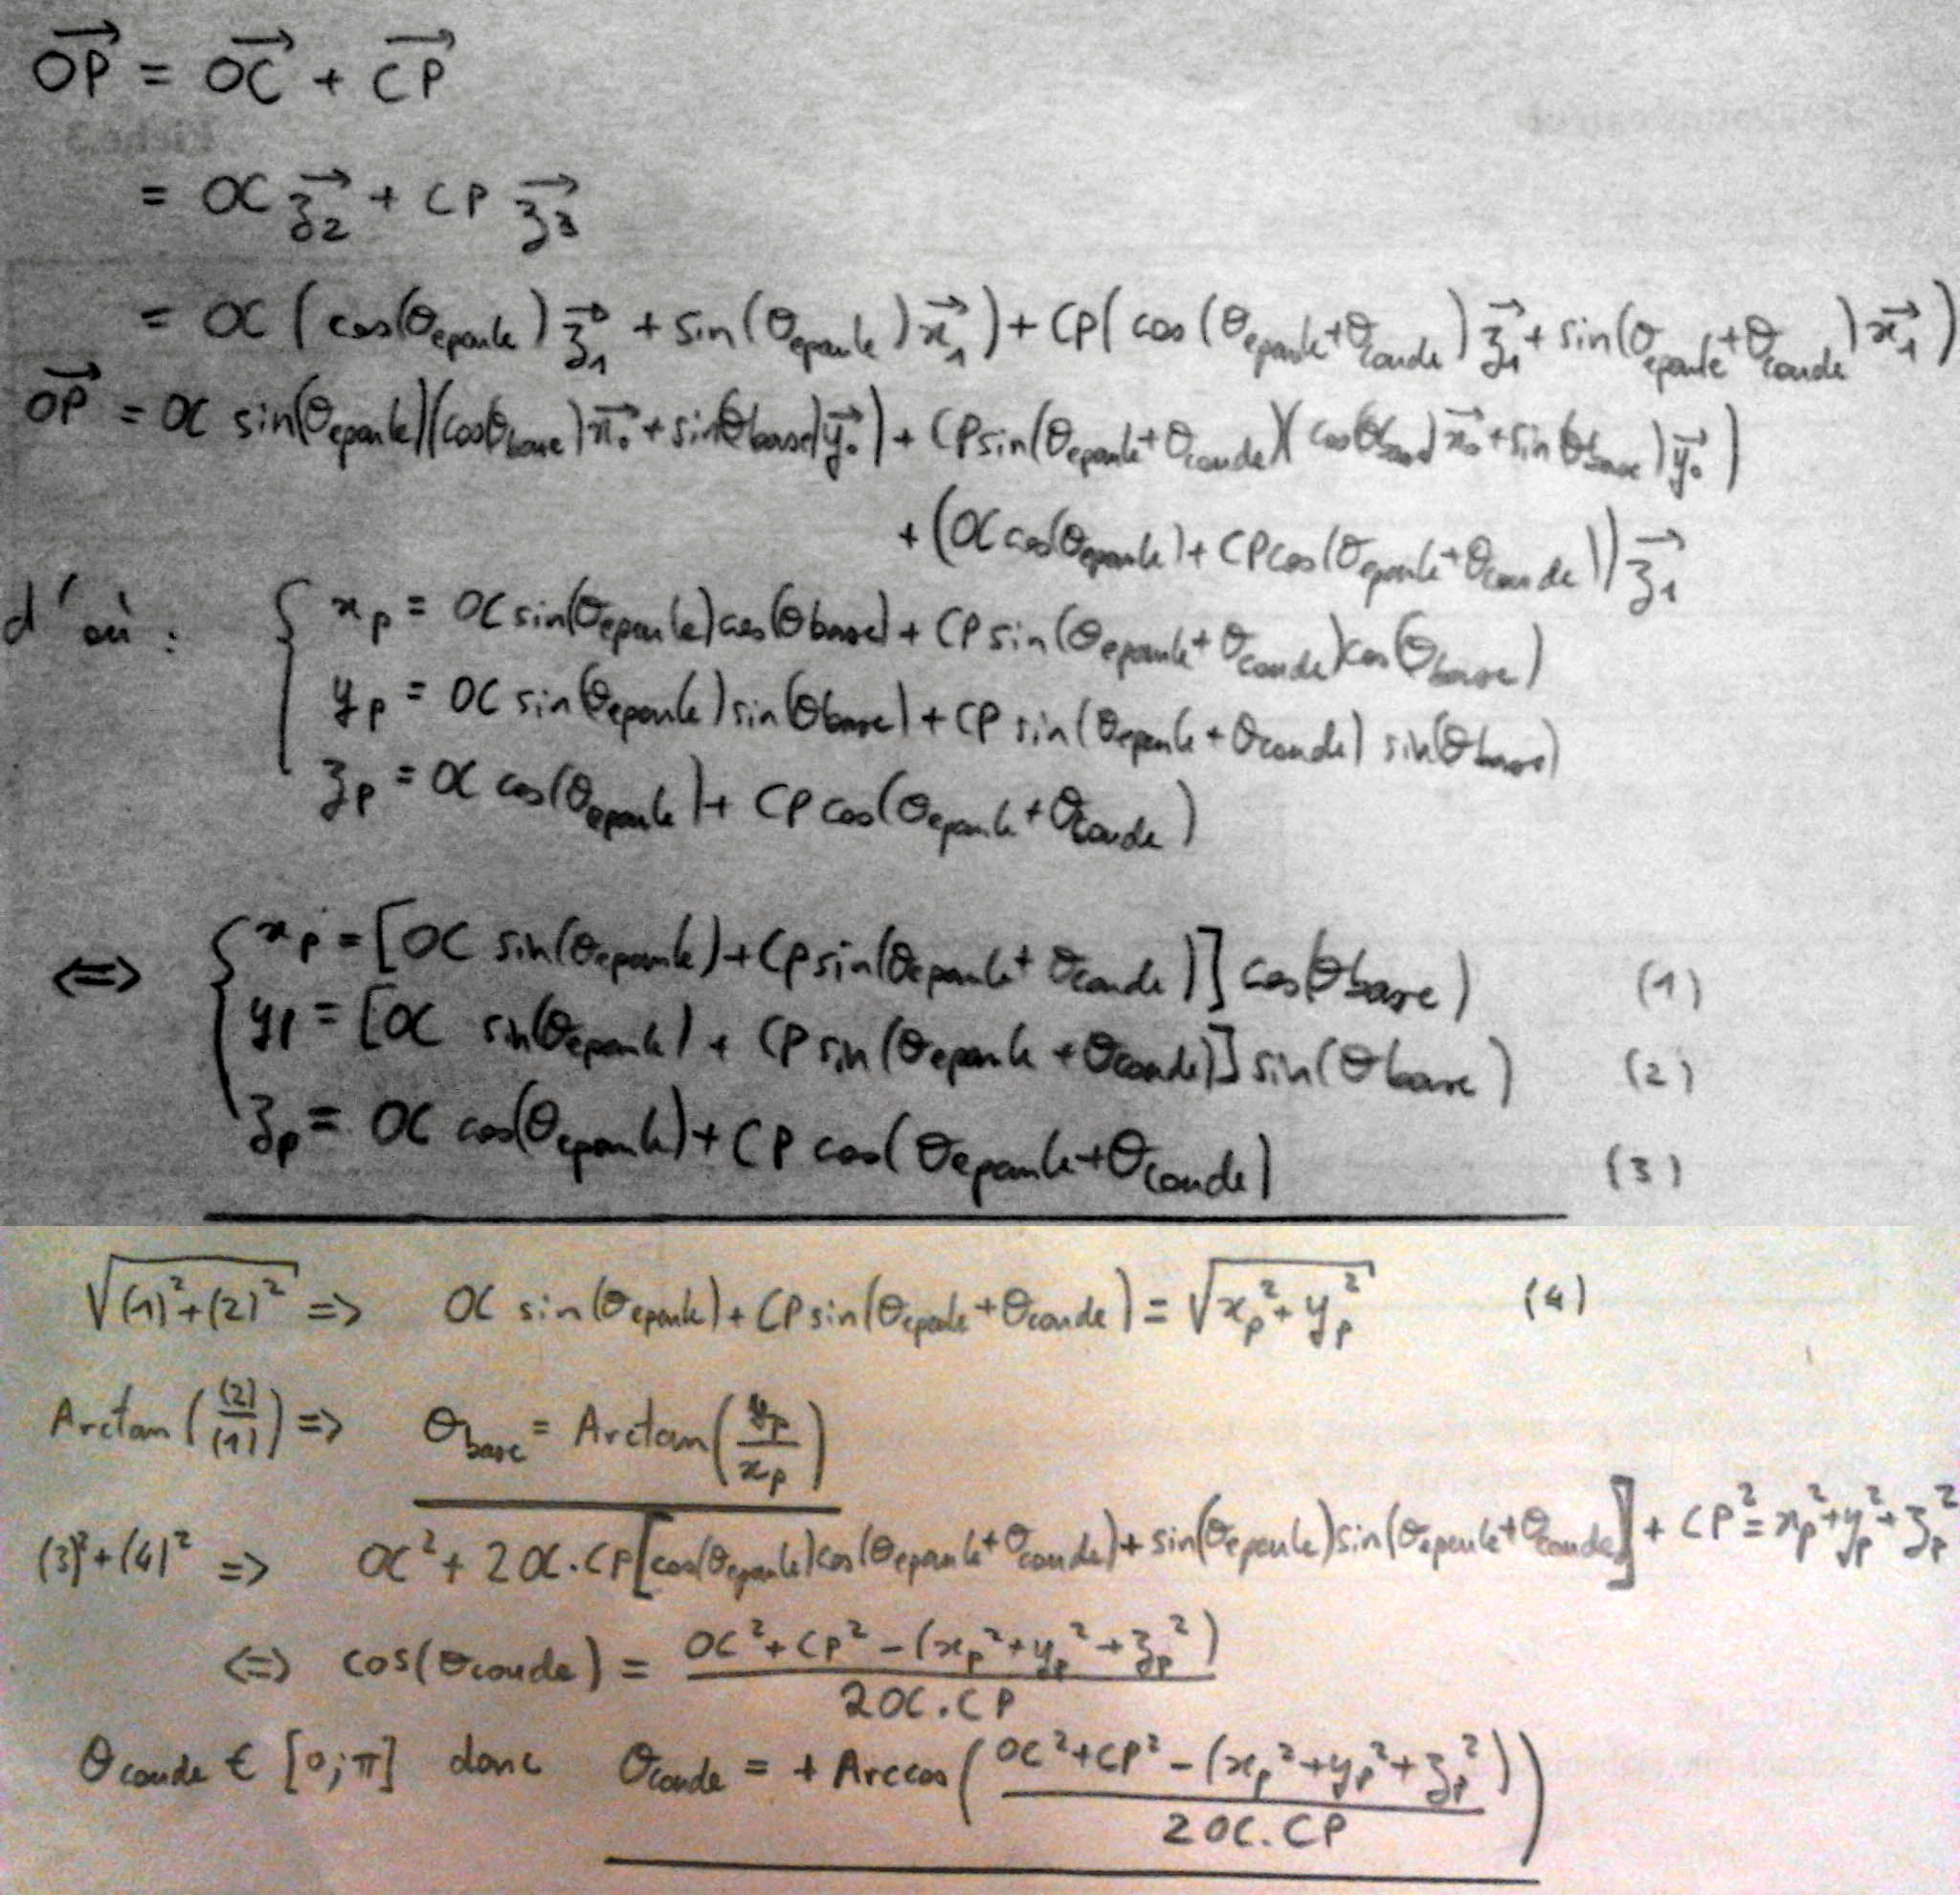 OP⃗ = OC⃗ + CP⃗
= OC z₂⃗ + CP z₃⃗
= OC (cos(θ_epaule) z₁⃗ + sin(θ_epaule) x₁⃗) + CP(cos(θ_epaule+θ_coude) z₁⃗ + sin(θ_epaule+θ_coude) x₁⃗)
OP⃗ = OC sin(θ_epaule)(cos(θ_base) x₀⃗ + sin(θ_base) y₀⃗) + CP sin(θ_epaule+θ_coude)(cos(θ_base) x₀⃗ + sin(θ_base) y₀⃗)
+ (OC cos(θ_epaule) + CP cos(θ_epaule+θ_coude)) z₁⃗
d'où : { x_p = OC sin(θ_epaule) cos(θ_base) + CP sin(θ_epaule+θ_coude) cos(θ_base)
y_p = OC sin(θ_epaule) sin(θ_base) + CP sin(θ_epaule+θ_coude) sin(θ_base)
z_p = OC cos(θ_epaule) + CP cos(θ_epaule+θ_coude)
<=> { x_p = [OC sin(θ_epaule) + CP sin(θ_epaule+θ_coude)] cos(θ_base) (1)
y_p = [OC sin(θ_epaule) + CP sin(θ_epaule+θ_coude)] sin(θ_base) (2)
z_p = OC cos(θ_epaule) + CP cos(θ_epaule+θ_coude) (3)
√((1)²+(2)²) => OC sin(θ_epaule) + CP sin(θ_epaule+θ_coude) = √(x_p² + y_p²) (4)
Arctan((2)/(1)) => θ_base = Arctan(y_p/x_p)
(3)²+(4)² => OC² + 2OC.CP[cos(θ_epaule)cos(θ_epaule+θ_coude) + sin(θ_epaule)sin(θ_epaule+θ_coude)] + CP² = x_p²+y_p²+z_p²
<=> cos(θ_coude) = (OC²+CP²-(x_p²+y_p²+z_p²))/(2OC.CP)
θ_coude ∈ [0;π] donc θ_coude = + Arccos((OC²+CP²-(x_p²+y_p²+z_p²))/(2OC.CP))